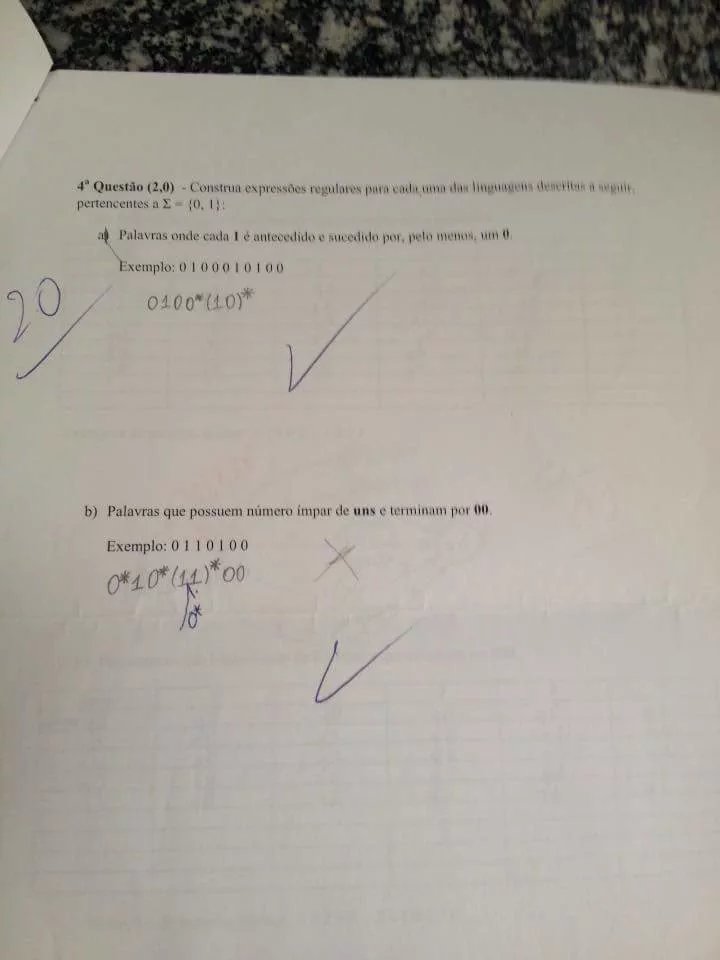 4ª Questão (2,0) - Construa expressões regulares para cada uma das linguagens descritas a seguir,
pertencentes a Σ = {0, 1}:
a) Palavras onde cada 1 é antecedido e sucedido por, pelo menos, um 0.
Exemplo: 0 1 0 0 0 1 0 1 0 0
20
0100*(10)*
b) Palavras que possuem número ímpar de uns e terminam por 00.
Exemplo: 0 1 1 0 1 0 0
0*10*(11)*00
0*